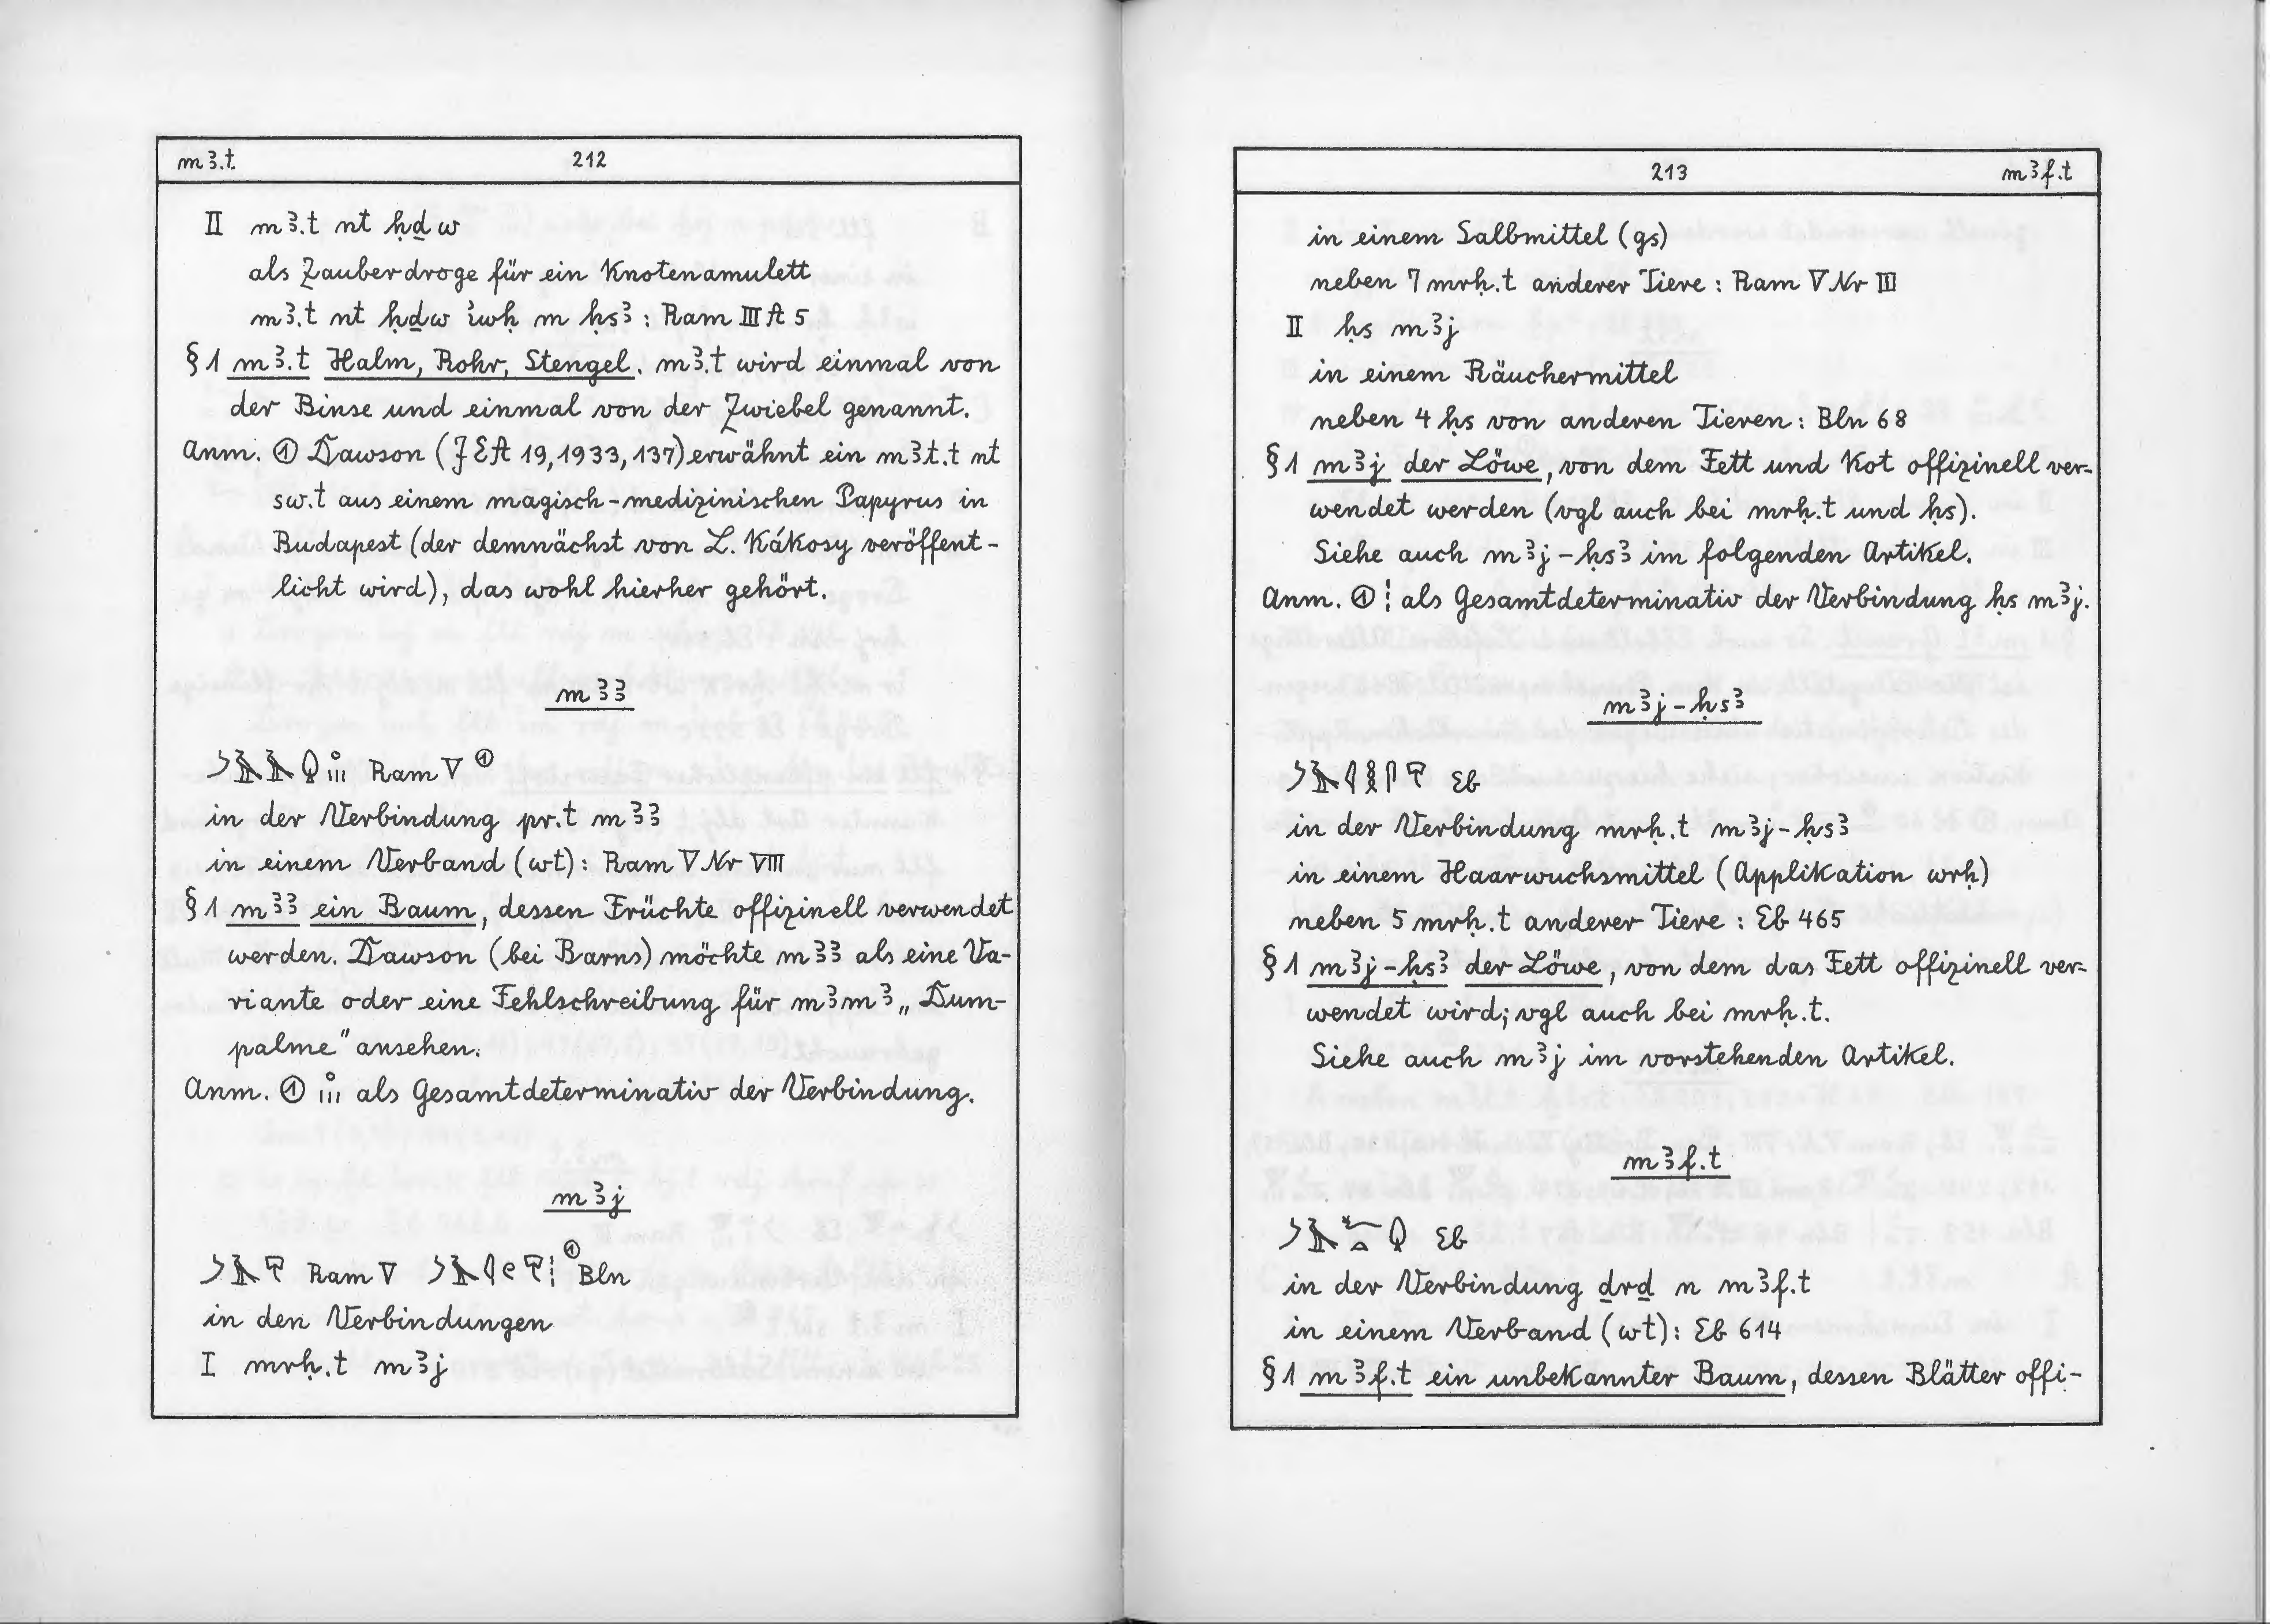 mꜣ.t 212
II mꜣ.t nt ḥḏw
als Zauberdroge für ein Knotenamulett
mꜣ.t nt ḥḏw ı͗wḥ m ḥsꜣ : Ram III A 5
§ 1 mꜣ.t Halm, Rohr, Stengel. mꜣ.t wird einmal von
der Binse und einmal von der Zwiebel genannt.
Anm. ① Dawson (JEA 19,1933,137) erwähnt ein mꜣt.t nt
sw.t aus einem magisch-medizinischen Papyrus in
Budapest (der demnächst von L. Kákosy veröffent-
licht wird), das wohl hierher gehört.
mꜣꜣ
Ram V ①
in der Verbindung pr.t mꜣꜣ
in einem Verband (wt): Ram V Nr VIII
§ 1 mꜣꜣ ein Baum, dessen Früchte offizinell verwendet
werden. Dawson (bei Barns) möchte mꜣꜣ als eine Va-
riante oder eine Fehlschreibung für mꜣmꜣ „Dum-
palme" ansehen.
Anm. ① als Gesamtdeterminativ der Verbindung.
mꜣj
Ram V ① Bln
in den Verbindungen
I mrḥ.t mꜣj
213 mꜣf.t
in einem Salbmittel (gs)
neben 7 mrḥ.t anderer Tiere : Ram V Nr III
II ḥs mꜣj
in einem Räuchermittel
neben 4 ḥs von anderen Tieren : Bln 68
§ 1 mꜣj der Löwe, von dem Fett und Kot offizinell ver-
wendet werden (vgl auch bei mrḥ.t und ḥs).
Siehe auch mꜣj-ḥsꜣ im folgenden Artikel.
Anm. ① ¦ als Gesamtdeterminativ der Verbindung ḥs mꜣj.
mꜣj-ḥsꜣ
Eb
in der Verbindung mrḥ.t mꜣj-ḥsꜣ
in einem Haarwuchsmittel (Applikation wrḥ)
neben 5 mrḥ.t anderer Tiere : Eb 465
§ 1 mꜣj-ḥsꜣ der Löwe, von dem das Fett offizinell ver-
wendet wird; vgl auch bei mrḥ.t.
Siehe auch mꜣj im vorstehenden Artikel.
mꜣf.t
Eb
in der Verbindung ḏrḏ n mꜣf.t
in einem Verband (wt): Eb 614
§ 1 mꜣf.t ein unbekannter Baum, dessen Blätter offi-